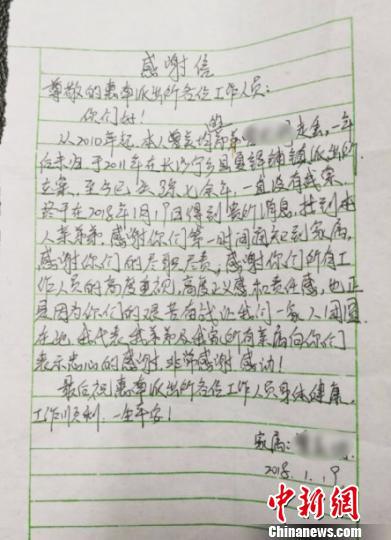 感谢信
尊敬的惠草派出所各位工作人员:
你们好!
的
从2010年起,本人曾美均弟弟 走失,一年
后未归,于2011年在长沙宁乡县 派出所
立案,至今已去了7年七余年,一直没有线索.
终于在2018年1月9日得到您的消息,找到本
人亲弟弟,感谢你们第一时间通知到家属,
感谢你们的尽职尽责,感谢你们所有工
作人员的高度重视,高度正义感和责任感,也正
是因为你们的艰苦 让我们一家人团圆
在此我代表我弟弟及我家所有亲属向你们
表示忠心的感谢,非常感谢 感动!
最后祝惠草派出所各位工作人员身体健康,
工作顺利,一生平安!
家属:
2018.1.9
中新网
Chinanews.com